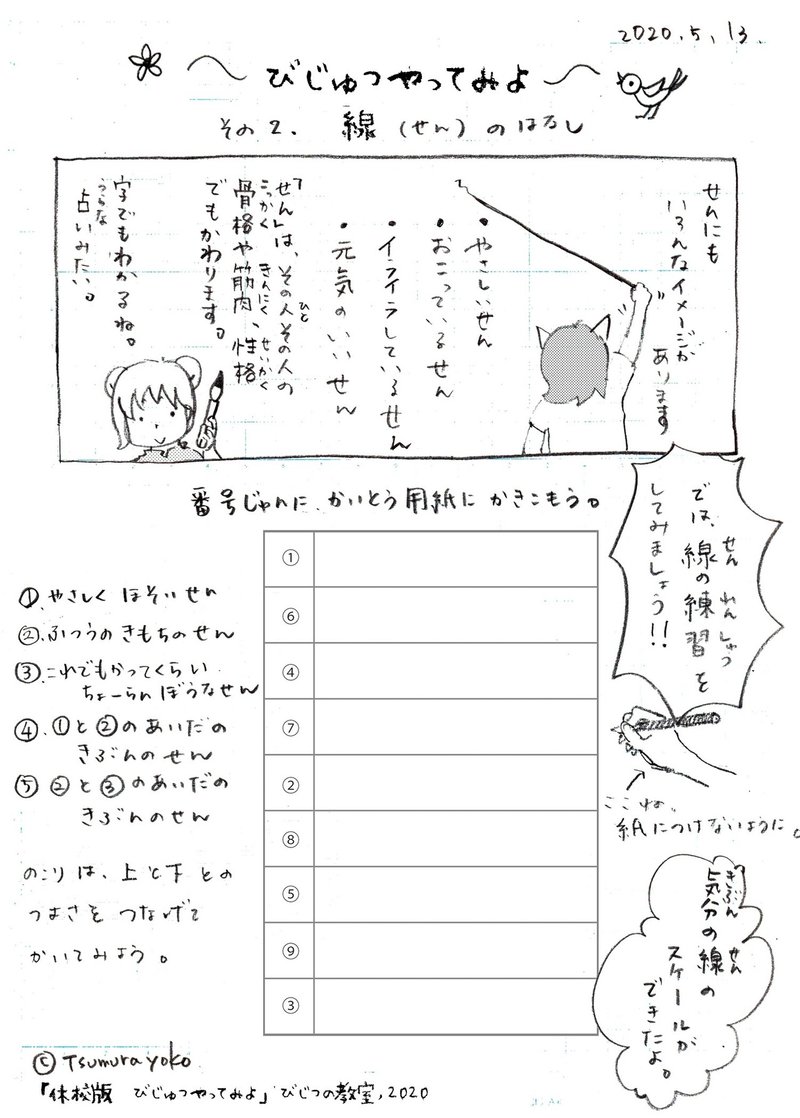 2020.5.13.
びじゅつやってみよ
その2. 線(せん)のはなし
せんにも
いろんなイメージが
あります
・やさしいせん
・おこっているせん
・イライラしているせん
・元気のいいせん
「せん」は、その人その人の
ひと
骨格や筋肉、性格
こっかく きんにく せいかく
でもかわります。
字でもわかるね。
占いみたい。
うらな
番号じゅんに、かいとう用紙に かきこもう。
では、線の練習を
せん れんしゅう
してみましょう!!
①.やさしく ほそいせん
②.ふつうのきもちのせん
③これでもかってくらい
ちょーらんぼうなせん
④.①と②のあいだの
きぶんのせん
⑤②と③のあいだの
きぶんのせん
のこりは、上と下との
つよさを つなげて
かいてみよう。
①
⑥
④
⑦
②
⑧
⑤
⑨
③
ここね。
紙につけないように。
気分の線の
きぶん せん
スケールが
できたよ。
©Tsumura yoko
「休校版 びじゅつやってみよ」びじつの教室, 2020